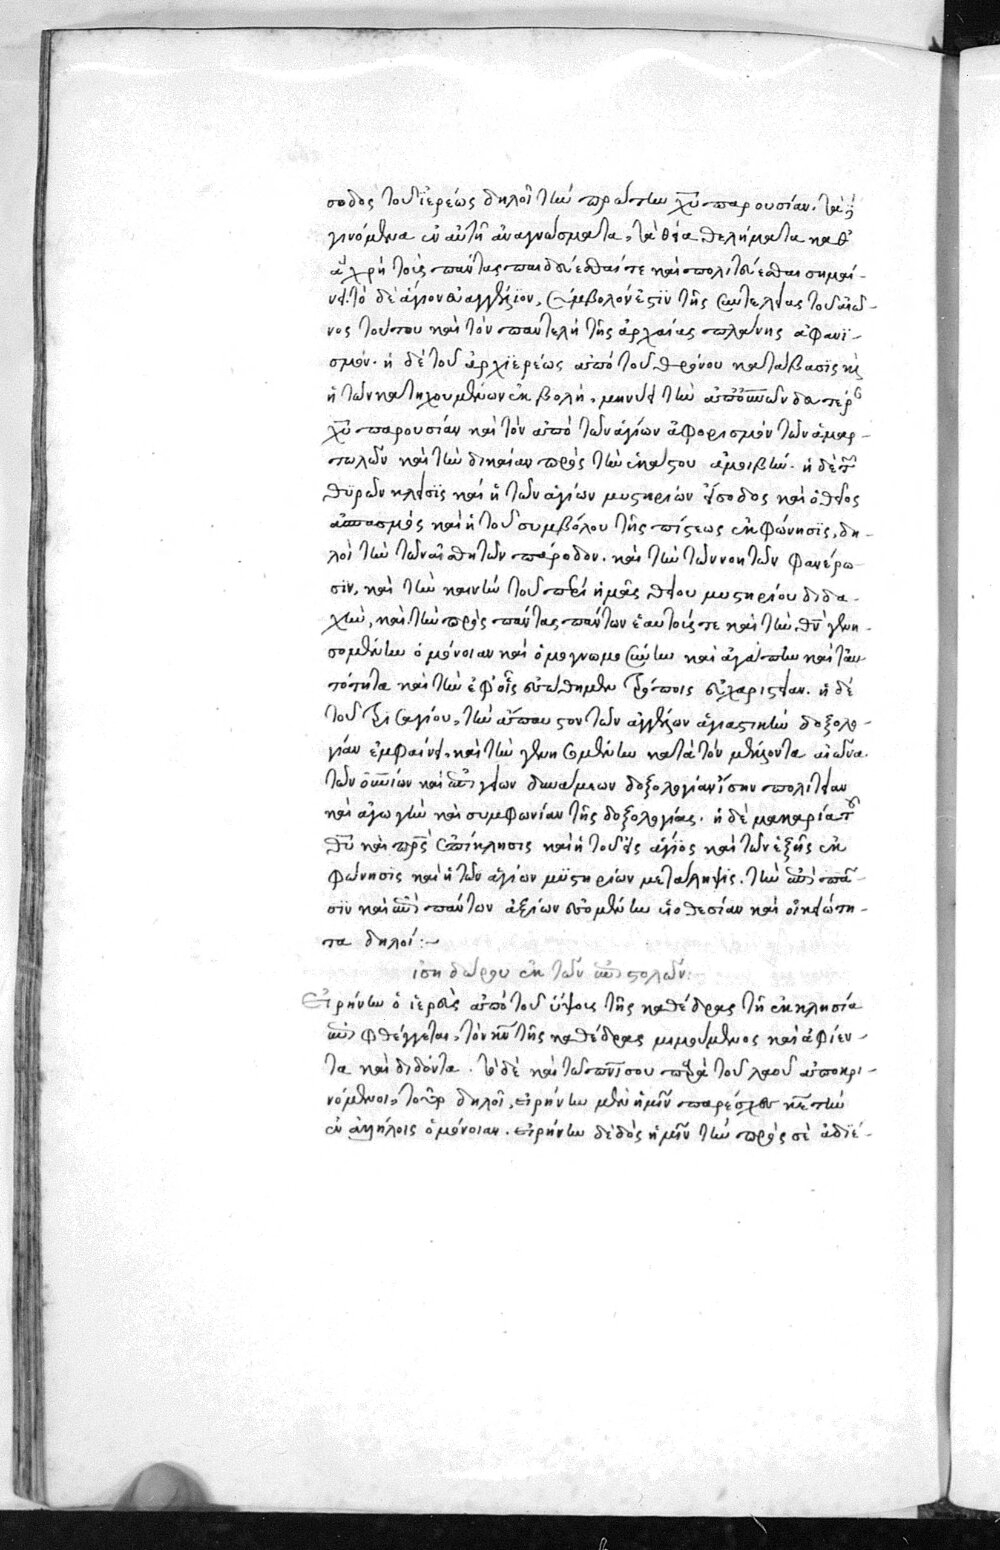 σοδος τοῦ ἱερέως δηλοῖ τὴν πρώτην χῦ παρουσίαν. τὰ
γινόμενα ἐν αὐτῇ ἀναγνώσματα, τὰ θεῖα θελήματα καθ'
ἃ χρὴ τοὺς πάντας παιδεύεσθαί τε καὶ πολιτεύεσθαι σημαί-
νει. τὸ δὲ ἅγιον εὐαγγέλϊον, σύμβολόν ἐστϊν τῆς συντελείας τοῦ αἰῶ-
νος τούτου καὶ τὸν παντελῆ τῆς ἀρχαίας πλάνης ἀφανϊ-
σμόν. ἡ δὲ τοῦ ἀρχϊερέως ἀπὸ τοῦ θρόνου κατάβασϊς κ
ἡ τῶν κατηχουμένων ἐκβολὴ, μηνύει τὴν ἀπὸ οὐνῶν δευτέρ
χῦ παρουσίαν καὶ τὸν ἀπὸ τῶν ἁγίων ἀφορισμὸν τῶν ἁμαρ-
τωλῶν καὶ τὴν δικαίαν πρὸς τὴν ἑκάστου ἀμοιβήν. ἡ δὲ τ
θϋρῶν κλεῖσϊς καὶ ἡ τῶν ἁγίων μυστηρίων εἴσοδος καὶ ὁ θεῖος
ἀσπασμὸς καὶ ἡ τοῦ συμβόλου τῆς πίστεως ἐκφώνησϊς, δη-
λοῖ τὴν τῶν αἰσθητῶν πάροδον. καὶ τὴν τῶν νοητῶν φανέρω-
σϊν, καὶ τὴν καινὴν τοῦ περὶ ἡμᾶς θείου μυστηρίου διδα-
χὴν, καὶ τὴν πρὸς πάντας πάντων ἑαυτοῖς τε καὶ τὴν θν γενη-
σομένην ὁμόνοιαν καὶ ὁμογνωμοσύνην καὶ ἀγάπην καὶ ταυ
τότητα καὶ τὴν ἐφ' οἷς ἐσώθημεν τρόποις εὐχαριστίαν. ἡ δὲ
τοῦ τρϊσαγίου, τὴν ἄπαυστον τῶν ἀγγέλων ἁγιαστικὴν δοξολο-
γίαν ἐμφαίνει, καὶ τὴν γενησομένην κατὰ τὸν μέλλοντα αἰῶνα
τῶν οὐνίων καὶ ἐπιγείων δυνάμεων δοξολογίαν ἴσην πολιτείαν
καὶ ἀγωγὴν καὶ συμφωνίαν τῆς δοξολογίας. ἡ δὲ μακαρία τοῦ
θῦ καὶ πρς ἐπίκλησις καὶ ἡ τοῦ εἷς ἅγϊος καὶ τῶν ἑξῆς ἐκ
φώνησϊς καὶ ἡ τῶν ἁγίων μϋστηρίων μετάληψϊς. τὴν ἐπὶ πᾶ-
σϊν καὶ ἐπὶ πάντων ἀξίων ἐσομένην υἱοθεσίαν καὶ οἰκειότη-
τα δηλοῖ:-
ἰσιδώρου ἐκ τῶν ἐπιστολῶν:
Εἰρήνην ὁ ἱερεὺς ἀπὸ τοῦ ὕψους τῆς καθέδρας τῇ ἐκκλησία
ἐπιφθέγγεται, τὸν κν τῆς καθέδρας μιμούμενος καὶ ἀφίεν-
τα καὶ διδόντα. τὸ δὲ καὶ τῶ πνΐ σου παρὰ τοῦ λαοῦ ἀποκρι-
νόμενοι, τοῦτο δηλοῖ, εἰρήνην μὲν ἡμῖν παρέσχου κε τὴν
ἐν ἀλλήλοις ὁμόνοιαν. εἰρήνην δὲ δὸς ἡμῖν τὴν πρὸς σὲ ἀδϊέ-